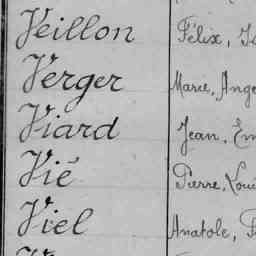 Veillon Félix, J
Verger Marie, Ange
Viard Jean, Em
Vié Pierre, Loui
Viel Anatole, F